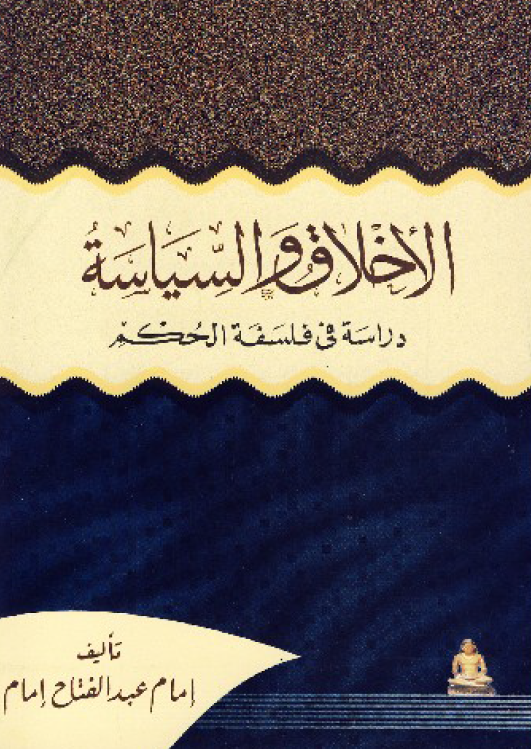 الأخلاق والسياسة
دراسة في فلسفة الحكم
تأليف
إمام عبد الفتاح إمام